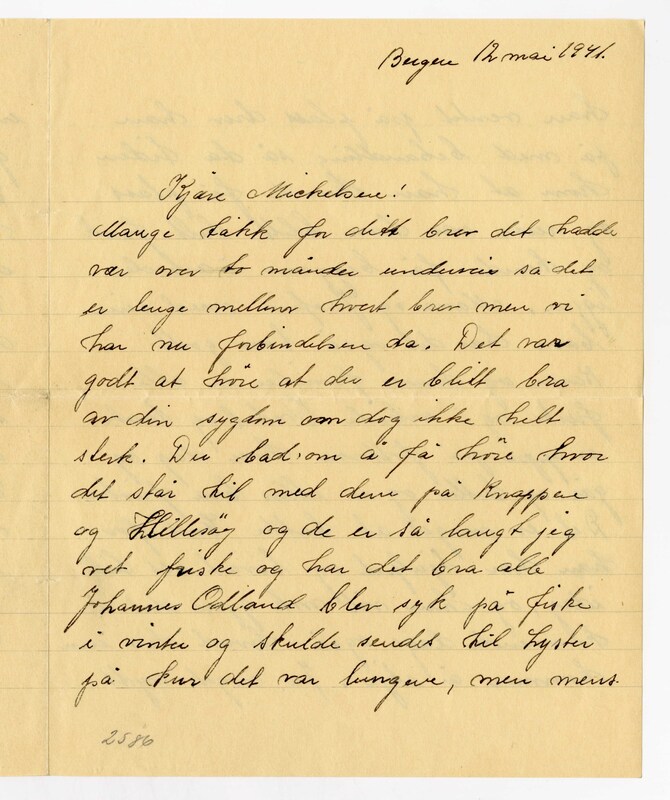 Bergen 12 mai 1941.
Kjære Mickelsen!
Mange takk for ditt brev det hadde
vær over to månder underveis så det
er lenge mellom hvert brev men vi
har nu forbindelsen da. Det var
godt at höre at du er blitt bra
av din sygdom om dog ikke helt
sterk. Du bad om å få höre hvor
det står til med dem på Knappen
og Hillesöy og de er så langt jeg
vet friske og har det bra alle
Johannes Odland blev syk på fiske
i vinter og skulde sendes til Lyster
på kur det var lungene, men mens
2586